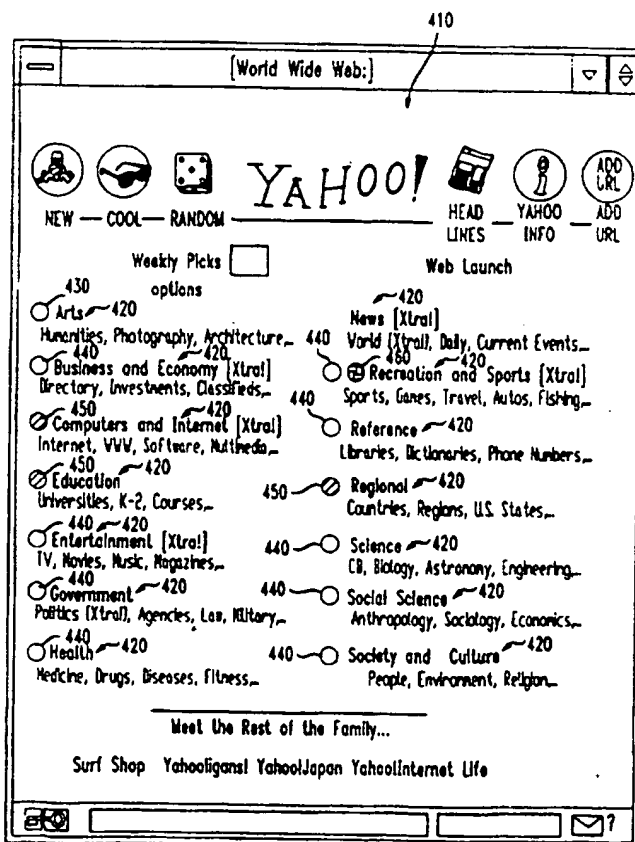 410
[World Wide Web:]
YAHOO!
ADD URL
NEW — COOL — RANDOM
HEAD LINES — YAHOO INFO — ADD URL
Weekly Picks
Web Launch
options
430
Arts 420
Humanities, Photography, Architecture...
440 420
Business and Economy [Xtra!]
Directory, Investments, Classifieds...
450 420
Computers and Internet [Xtra!]
Internet, WWW, Software, Multimedia...
450 420
Education
Universities, K-2, Courses...
440 420
Entertainment [Xtra!]
TV, Movies, Music, Magazines...
440
Government 420
Politics [Xtra!], Agencies, Law, Military...
440
Health 420
Medicine, Drugs, Diseases, Fitness...
420
News [Xtra!]
World [Xtra!], Daily, Current Events...
440 460 420
Recreation and Sports [Xtra!]
Sports, Games, Travel, Autos, Fishing...
440
Reference 420
Libraries, Dictionaries, Phone Numbers...
450 Regional 420
Countries, Regions, U.S. States...
440 Science 420
CB, Biology, Astronomy, Engineering...
440 Social Science 420
Anthropology, Sociology, Economics...
440 Society and Culture 420
People, Environment, Religion...
Meet the Rest of the Family...
Surf Shop Yahooligans! Yahoo!Japan Yahoo!Internet Life
?